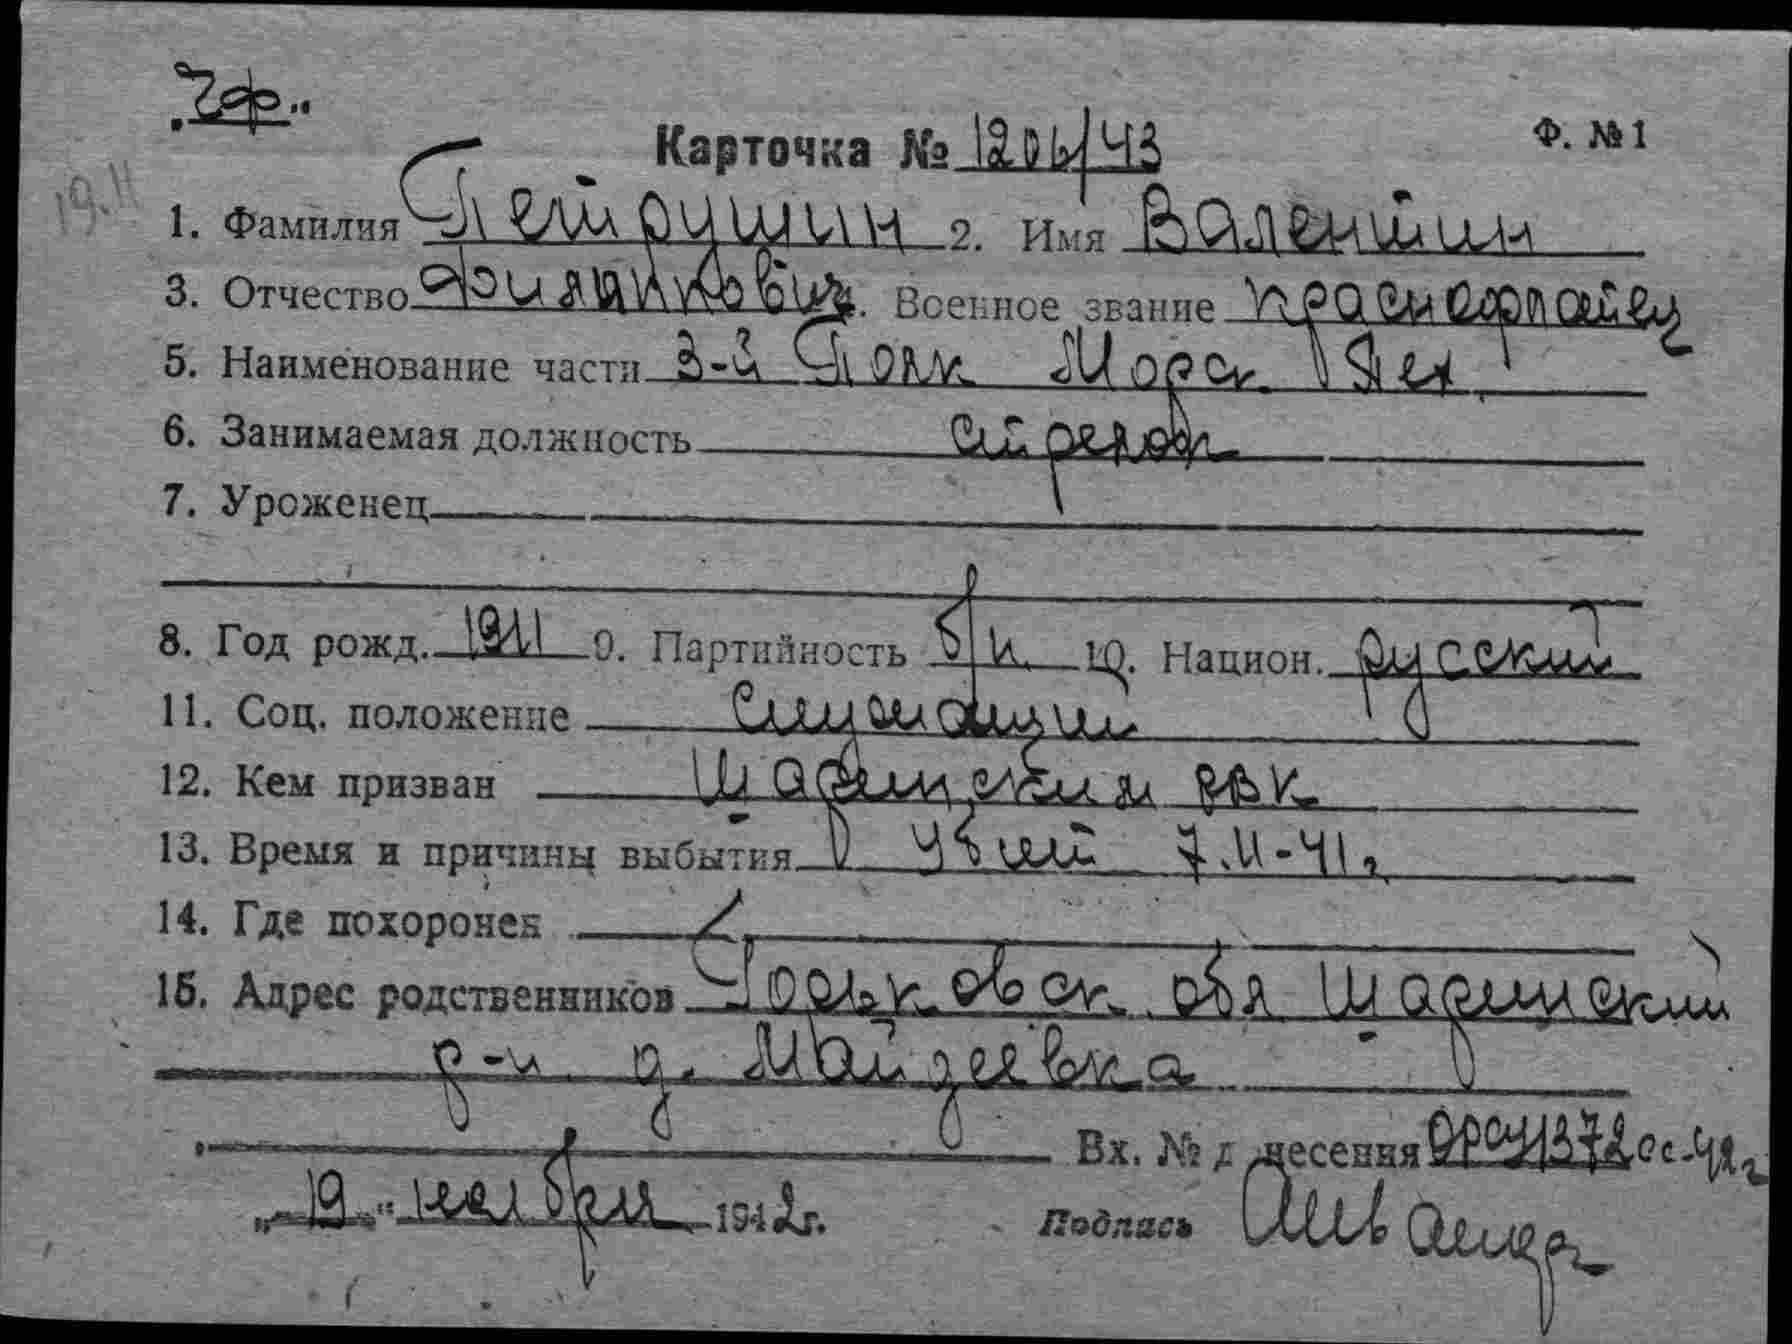 Карточка № 1206/43 Ф. № 1
19.11
1. Фамилия Петрушин 2. Имя Валентин
3. Отчество Военное звание краснофлотец
5. Наименование части 3-й Полк Морск Пех
6. Занимаемая должность стрелок
7. Уроженец
8. Год рожд. 1911 9. Партийность б/п 10. Национ. русский
11. Соц. положение служащий
12. Кем призван Шарьинским РВК
13. Время и причины выбытия Убит 7.11-41г
14. Где похоронен
15. Адрес родственников Горьковск обл Шарьинский
р-н д. Майдеевка
Вх. № донесения 1372сс-42г
„19" ноября 1942г. Подпись